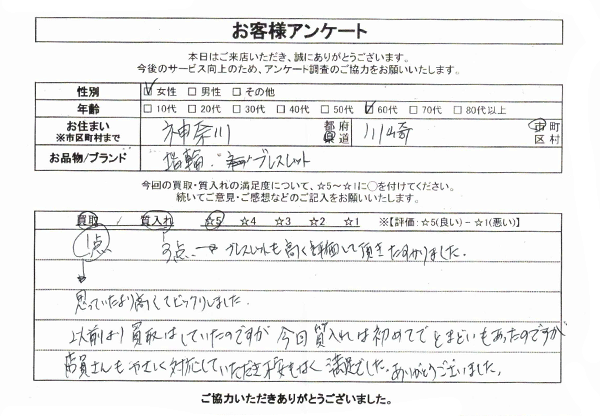 お客様アンケート
本日はご来店いただき、誠にありがとうございます。
今後のサービス向上のため、アンケート調査のご協力をお願いいたします。
性別 ☑女性 □男性 □その他
年齢 □10代 □20代 □30代 □40代 □50代 ☑60代 □70代 □80代以上
お住まい
※市区町村まで 神奈川 都府県道 川崎 市町区村
お品物/ブランド 指輪、ブレスレット
今回の買取・質入れの満足度について、☆5～☆1に○を付けてください。
続いてご意見・ご感想などのご記入をお願いいたします。
買取 / 質入れ ☆5 ☆4 ☆3 ☆2 ☆1 ※【評価：☆5(良い)－☆1(悪い)】
1点 3点 → ブレスレットも高く評価して頂きたすかりました。
思っていたより高くてビックリしました。
以前より買取はしていたのですが今回質入れは初めてでとまどいもあったのですが
店員さんもやさしく対応していただき不安もなく満足でした。ありがとうございました。
ご協力いただきありがとうございました。